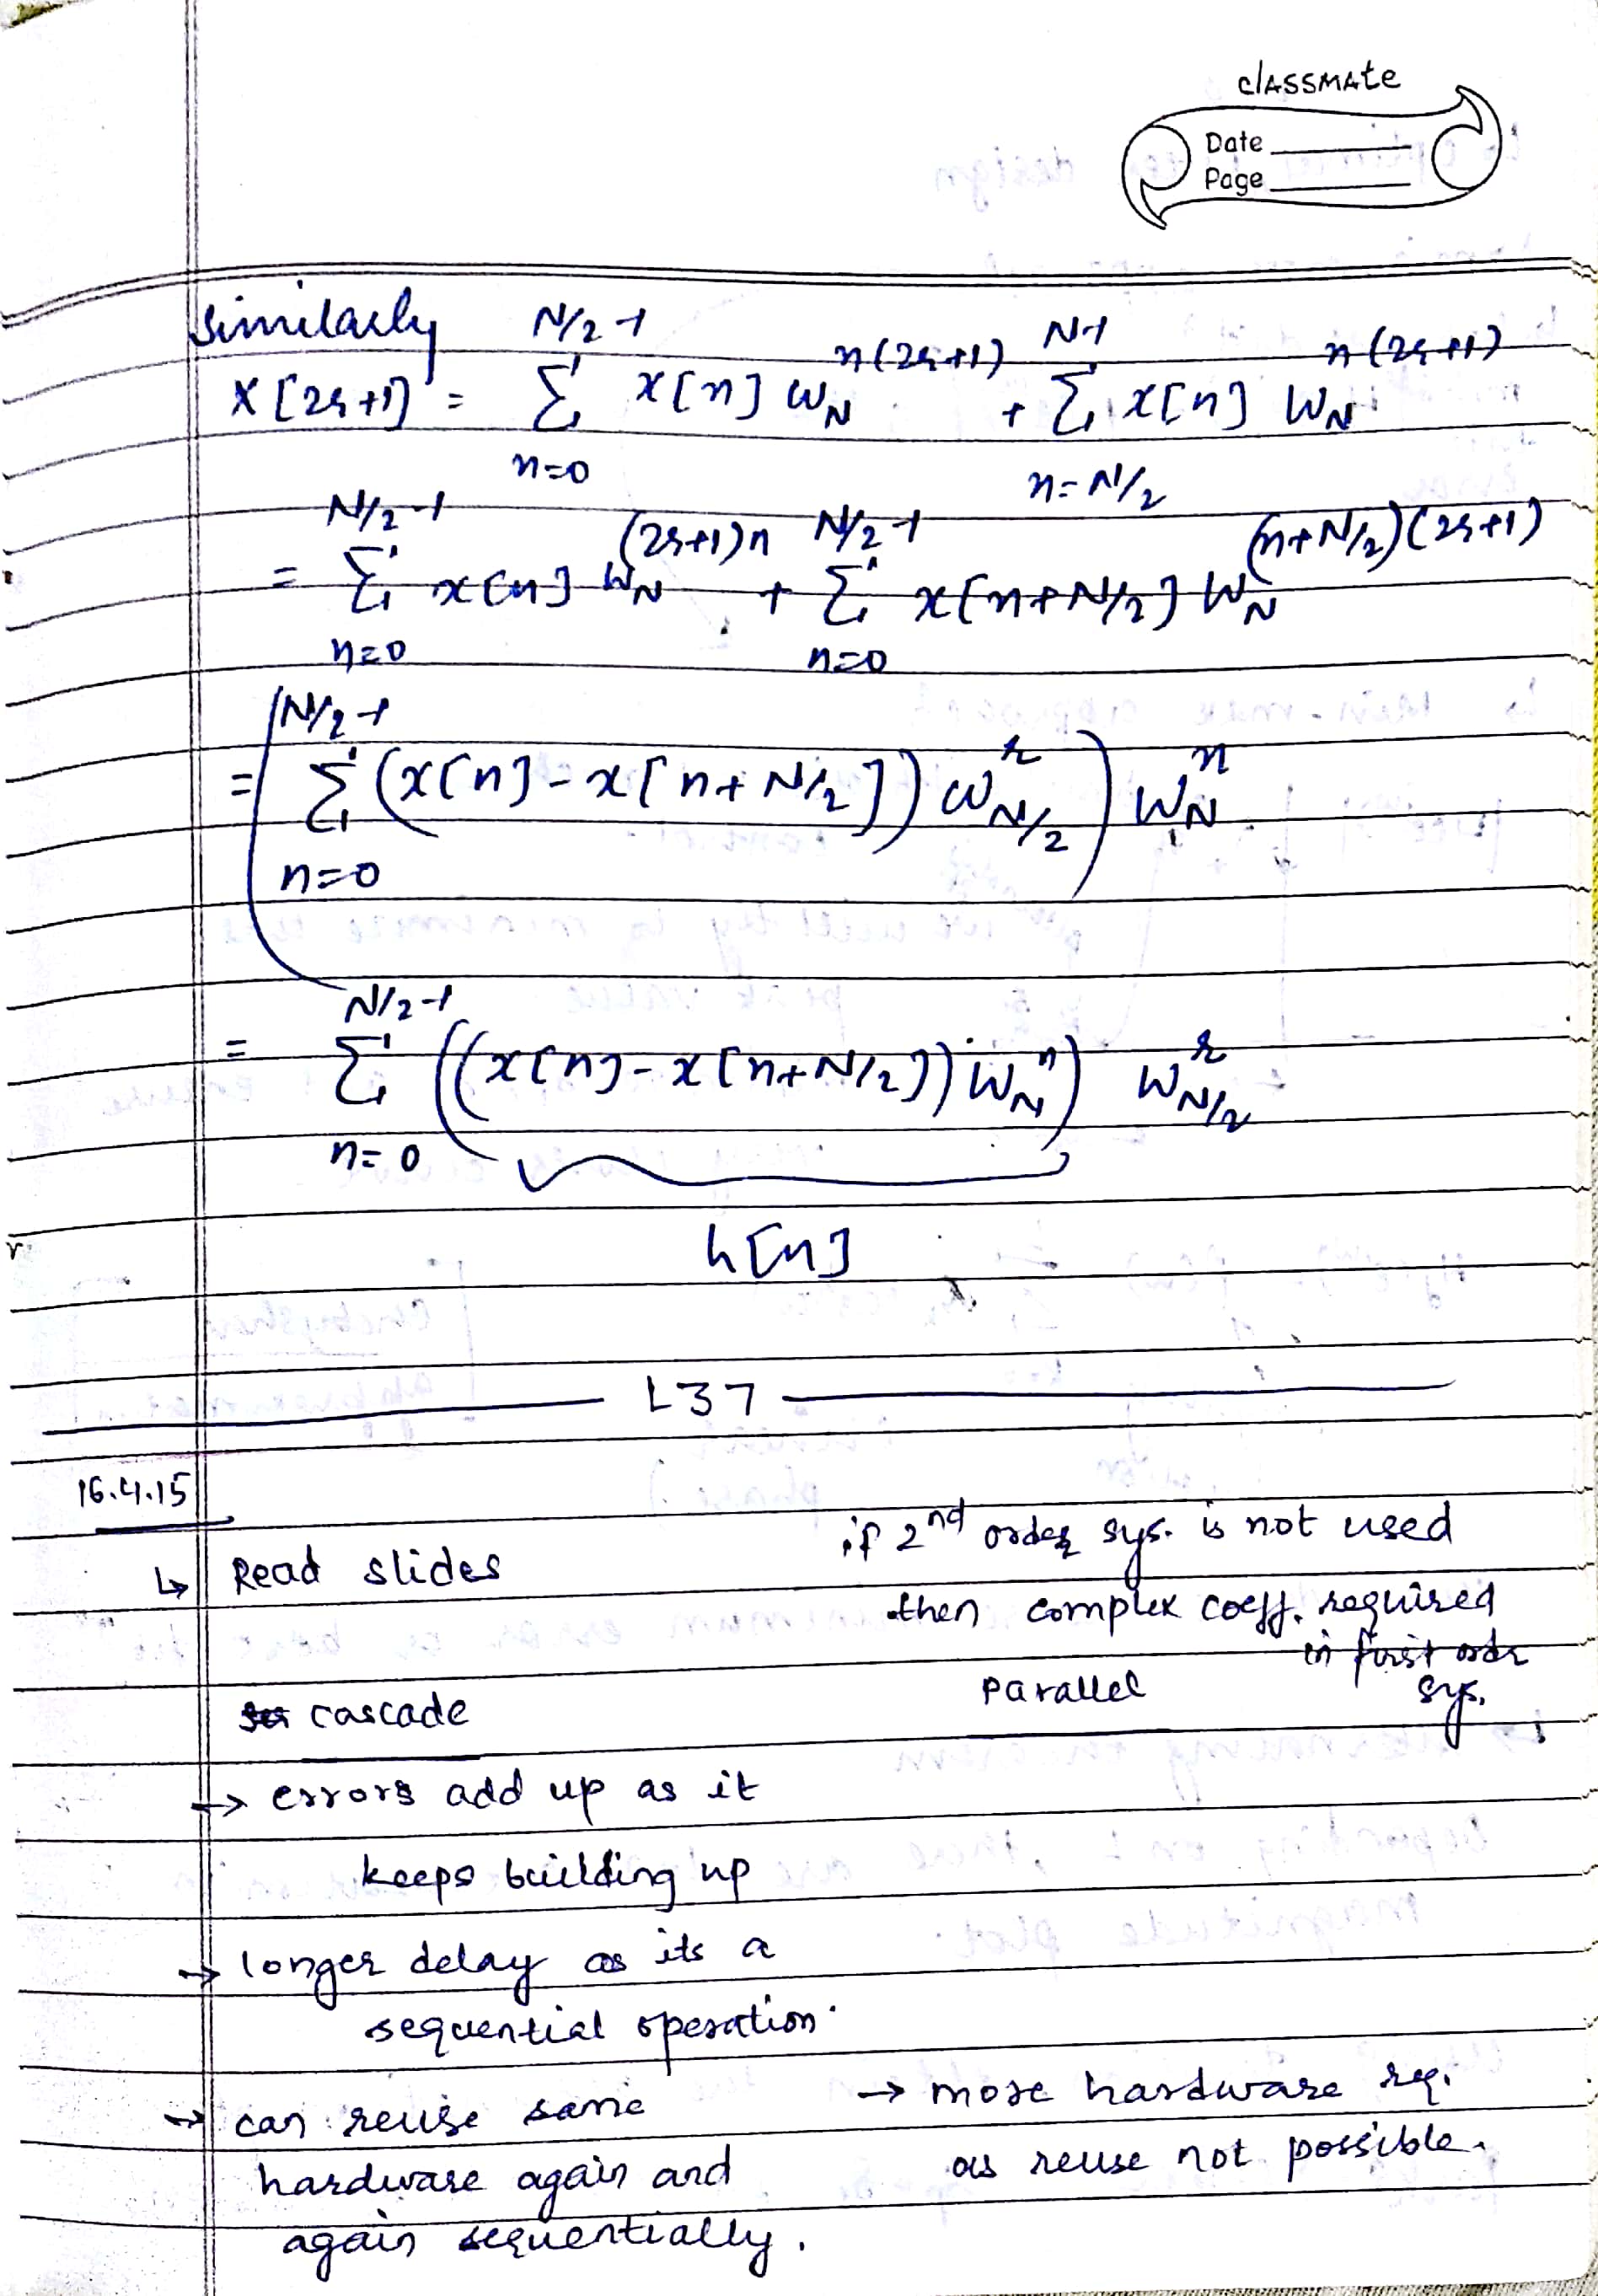 classmate
Date
Page
Similarly
X[2r+1] = \sum_{n=0}^{N/2-1} x[n] W_N^{n(2r+1)} + \sum_{n=N/2}^{N-1} x[n] W_N^{n(2r+1)}
= \sum_{n=0}^{N/2-1} x[n] W_N^{(2r+1)n} + \sum_{n=0}^{N/2-1} x[n+N/2] W_N^{(n+N/2)(2r+1)}
= ( \sum_{n=0}^{N/2-1} (x[n] - x[n+N/2]) W_{N/2}^{r} ) W_N^{n}
= \sum_{n=0}^{N/2-1} ((x[n] - x[n+N/2]) W_N^{n}) W_{N/2}^{r}
h[n]
L37
16.4.15
↳ Read slides
if 2nd order sys. is not used
then complex coeff. required
in first ordr
sys.
cascade
Parallel
→ errors add up as it
keeps building up
→ longer delay as its a
sequential operation.
→ can reuse same
hardware again and
again sequentially.
→ more hardware req.
as reuse not possible.